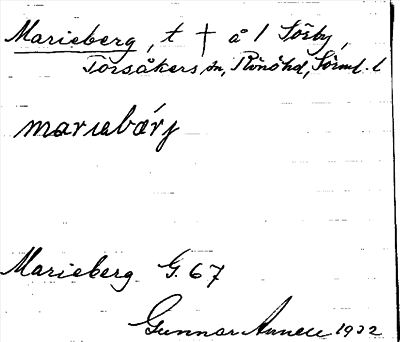 Marieberg, t † å 1 Sösby,
Torsåkers sn, Rönö hd, Södml. l
marıebærj
Marieberg G. 67
Gunnar 1932